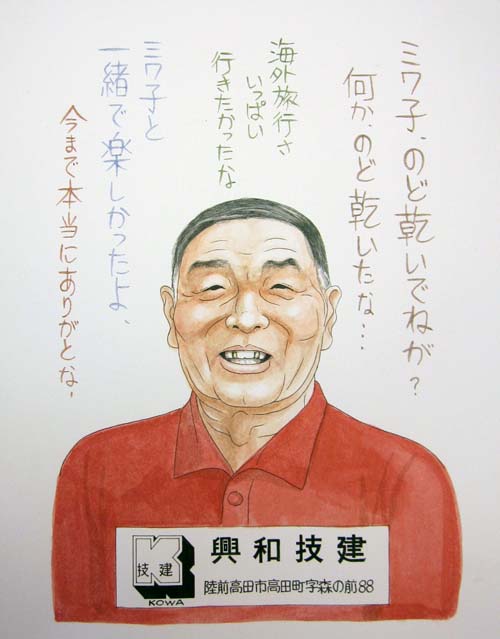 ミワ子、のど乾いでねが？
何か、のど乾いたな…
海外旅行さ
いっぱい
行きたかったな
ミワ子と
一緒で楽しかったよ、
今まで本当にありがとな、
技建
KOWA
興和技建
陸前高田市高田町字森の前88